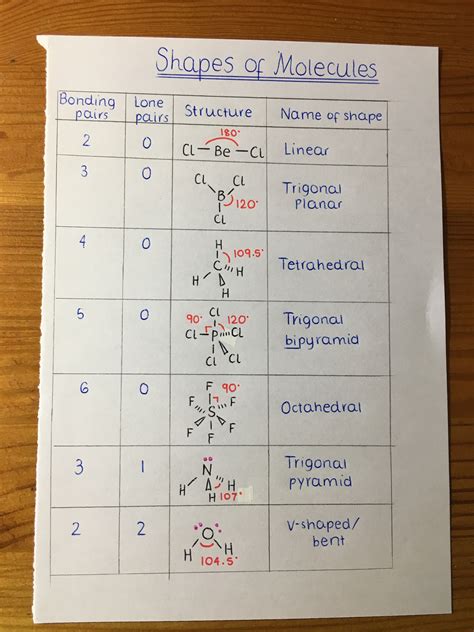 Shapes of Molecules
Bonding pairs Lone pairs Structure Name of shape
2 0 180° Cl Be Cl Linear
3 0 Cl Cl B 120° Cl Trigonal planar
4 0 H 109.5° C H H H Tetrahedral
5 0 Cl 90° 120° Cl P Cl Cl Cl Trigonal bipyramid
6 0 F 90° F F S F F F Octahedral
3 1 N H H H 107° Trigonal pyramid
2 2 O H H 104.5° V-shaped/ bent